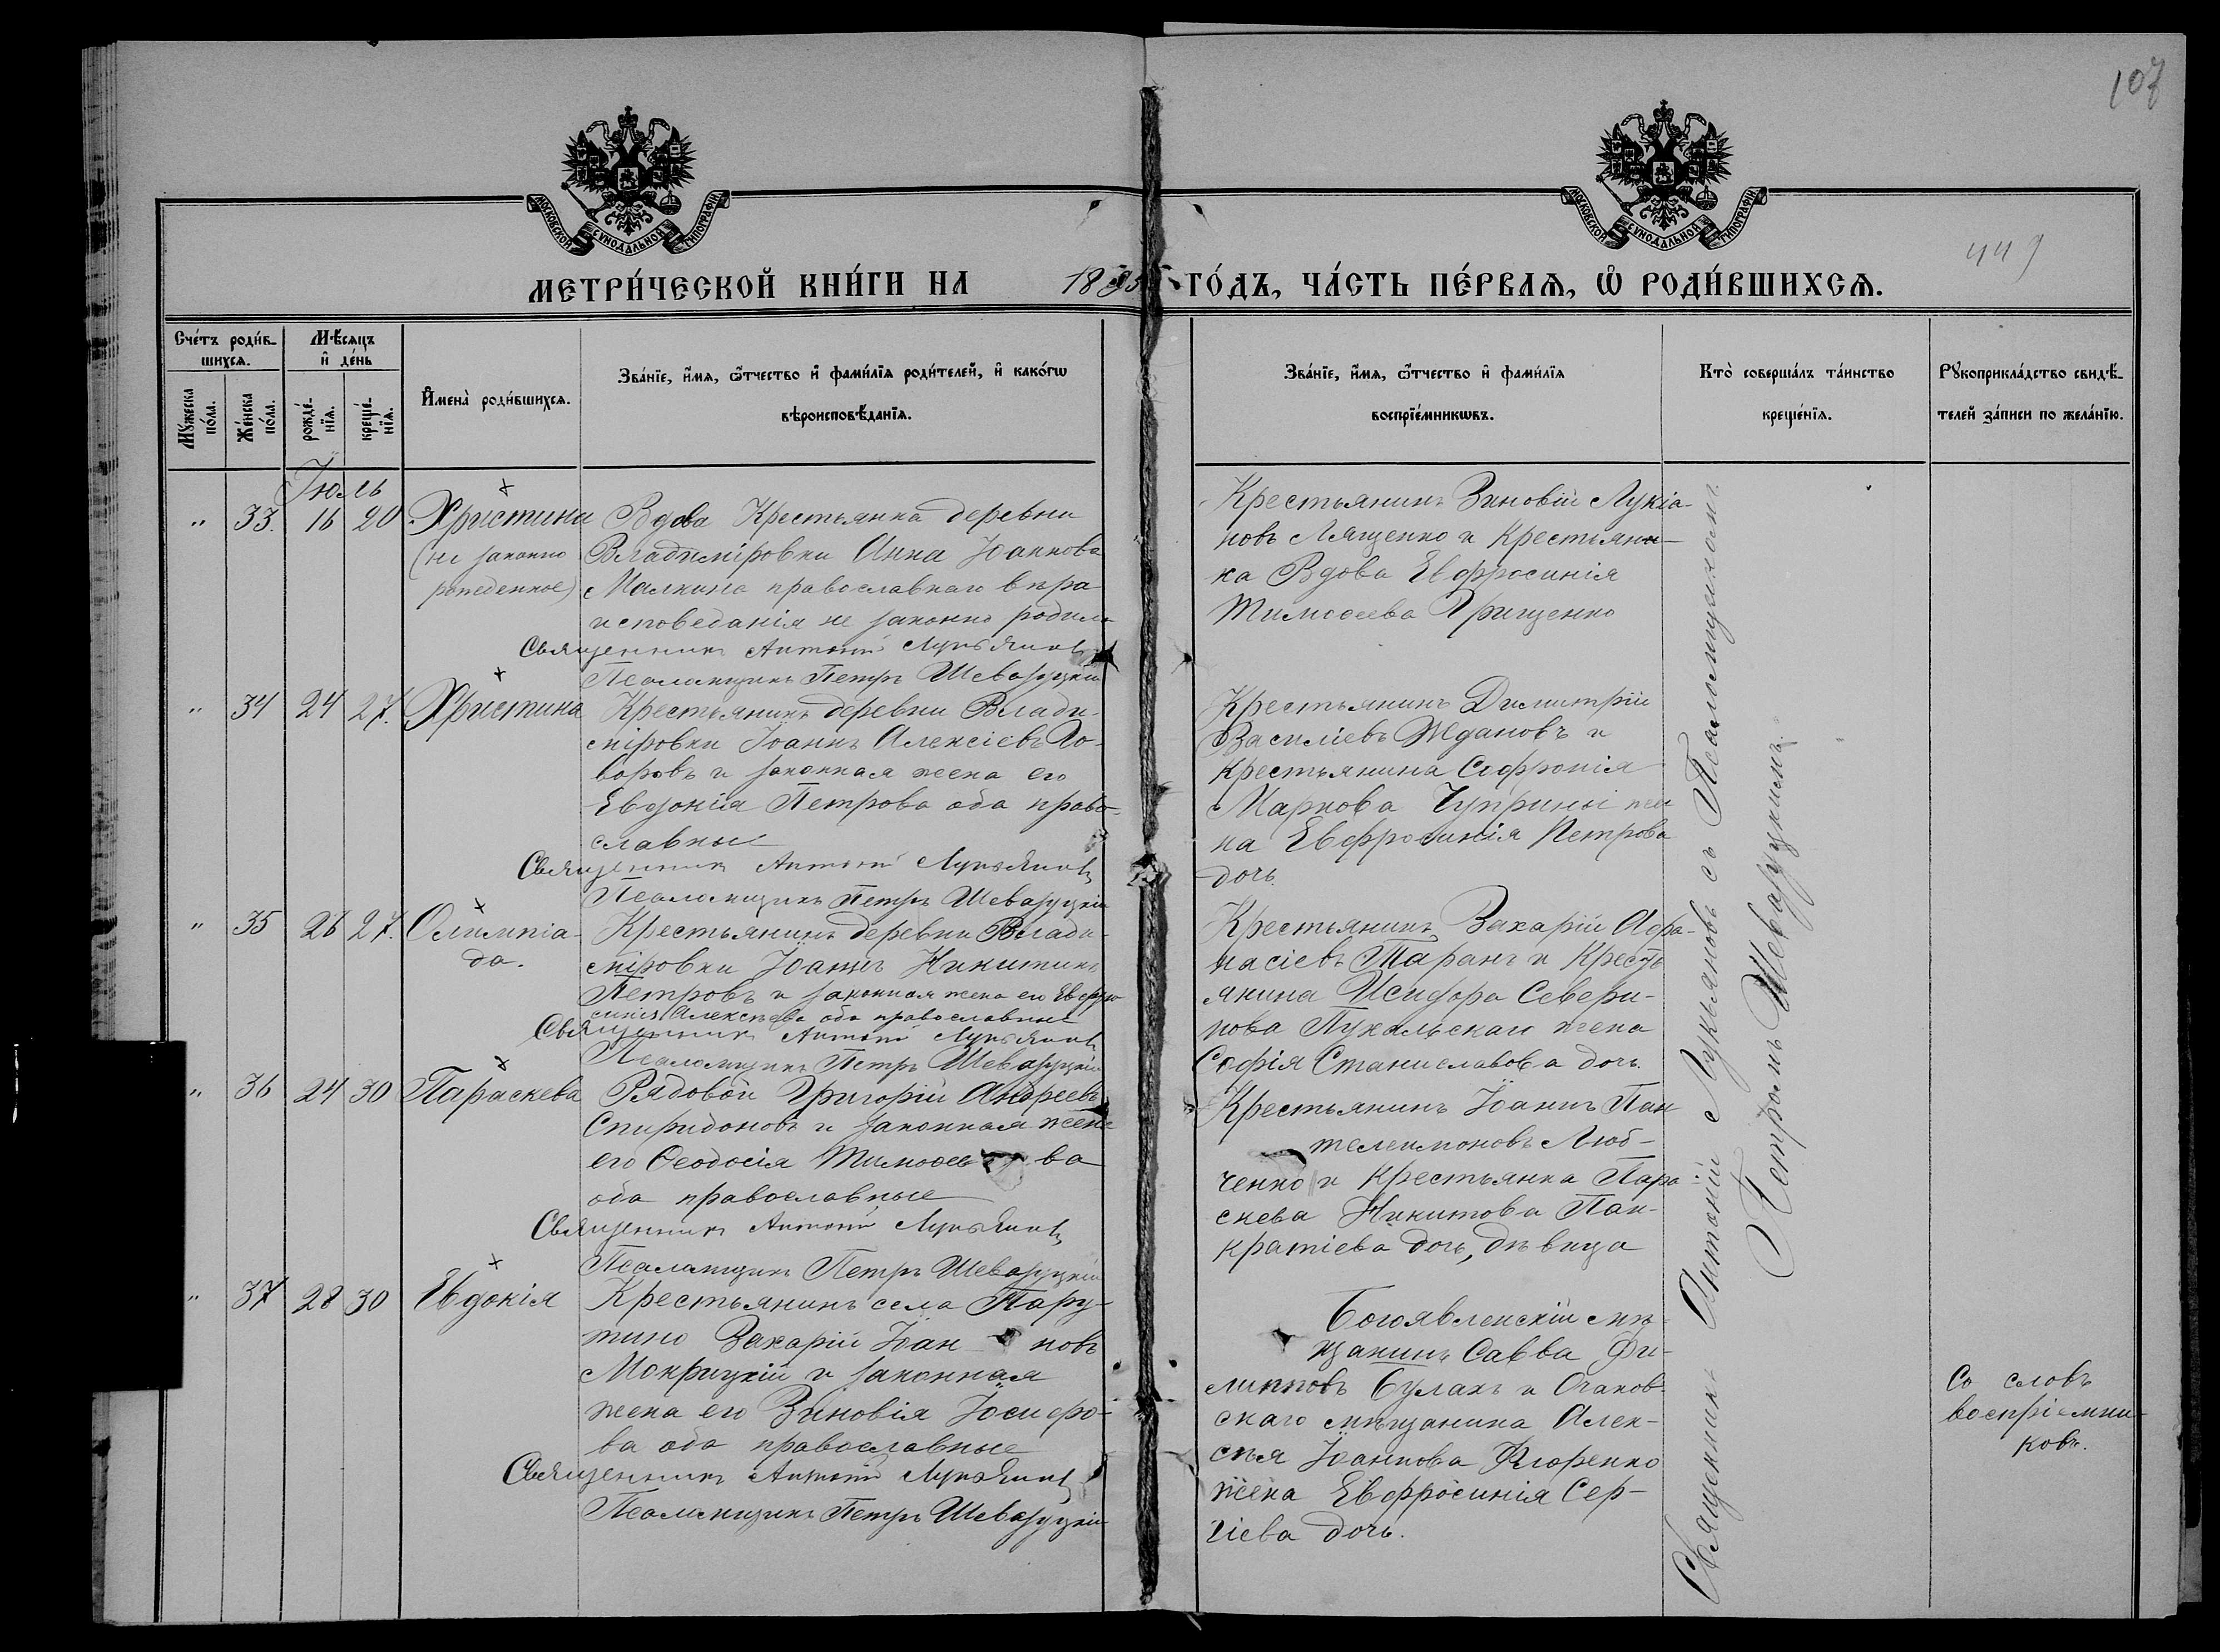 107
449
МОСКОВСКОЙ СѴНОДАЛЬНОЙ ТИПОГРАФІИ
МОСКОВСКОЙ СѴНОДАЛЬНОЙ ТИПОГРАФІИ
МЕТРИ́ЧЕСКОЙ КНИ́ГИ НА 1885 ГО́ДЪ, ЧА́СТЬ ПЕ́РВАѦ, Ѡ РОДИ́ВШИХСѦ.
Сче́тъ роди́в-
шихсѧ.
Мѣ́сѧцъ
и де́нь
Мꙋ́жеска
по́ла.
Же́нска
по́ла.
рожде́-
нїѧ.
креще́-
нїѧ.
Имена̀ роди́вшихсѧ.
Зва́нїе, и́мѧ, ѻ́тчество и фами́лїѧ роди́телей, и како́гѡ
вѣроисповѣ́данїѧ.
Зва́нїе, и́мѧ, ѻ́тчество и фами́лїѧ
воспрїе́мникѡвъ.
Кто̀ соверша́лъ та́инство
креще́нїѧ.
Рꙋкоприкла́дство свидѣ́-
телей за́писи по жела́нїю.
Іюль
" 33. 16 20 Христина
(не законно
рожденное)
Вдова Крестьянка деревни
Владиміровки Анна Іоаннова
Малкина православнаго
исповеданія не законно родила
Священникъ Антоній Лукьяновъ
Псаломщикъ Петръ Шеваруцкій
Крестьянинъ Зиновій Лукіа-
новъ Лященко и Крестьян-
ка Вдова Евфросинія
Тимоѳеева Грищенко
" 34 24 27. Христина
Крестьянинъ деревни Влади-
міровки Іоаннъ Алексіевъ Го-
воровъ и законная жена его
Евдокія Петрова оба право-
славные
Священникъ Антоній Лукьяновъ
Псаломщикъ Петръ Шеваруцкій
Крестьянинъ Димитрій
Василіевъ Ждановъ и
крестьянина Софронія
Маркова Чуприны же
на Евфросинія Петрова
дочь.
" 35 26 27. Олимпіа-
да.
Крестьянинъ деревни Влади-
міровки Іоаннъ Никитинъ
Петровъ и законная жена его Евфро
синія Алексѣева оба православные
Священникъ Антоній Лукьяновъ
Псаломщикъ Петръ Шеваруцкій
Крестьянинъ Захарій Аѳа-
насіевъ Таранъ и Кресть
янина Исидора Севери-
нова Пукальскаго жена
Софія Станиславова дочь.
" 36 24 30 Параскева
Рядовой Григорій Андреевъ
Спиридоновъ и законная жена
его Ѳеодосія Тимоѳеева
оба православные
Священникъ Антоній Лукьяновъ
Псаломщикъ Петръ Шеваруцкій
Крестьянинъ Іоаннъ Пан
телеимоновъ Люб-
ченко и крестьянка Пара
скева Никитова Пан-
кратіева дочь, дѣвица
" 37 28 30 Евдокія
Крестьянинъ села Пару-
тино Захарій Іоан новъ
Мокрицкій и законная
жена его Зиновія Іосифо-
ва оба православные
Священникъ Антоній Лукьяновъ
Псаломщикъ Петръ Шеваруцкій
Богоявленскій мѣ-
щанинъ Савва Фи-
липповъ Булахъ и Очаков-
скаго мѣщанина Алек-
сѣя Іоаннова Флоренко
жена Евфросинія Сер-
гіева дочь.
Священникъ Антоній Лукьяновъ съ Псаломщикомъ
Петромъ Шеваруцкимъ.
Со словъ
воспріемни-
ковъ.